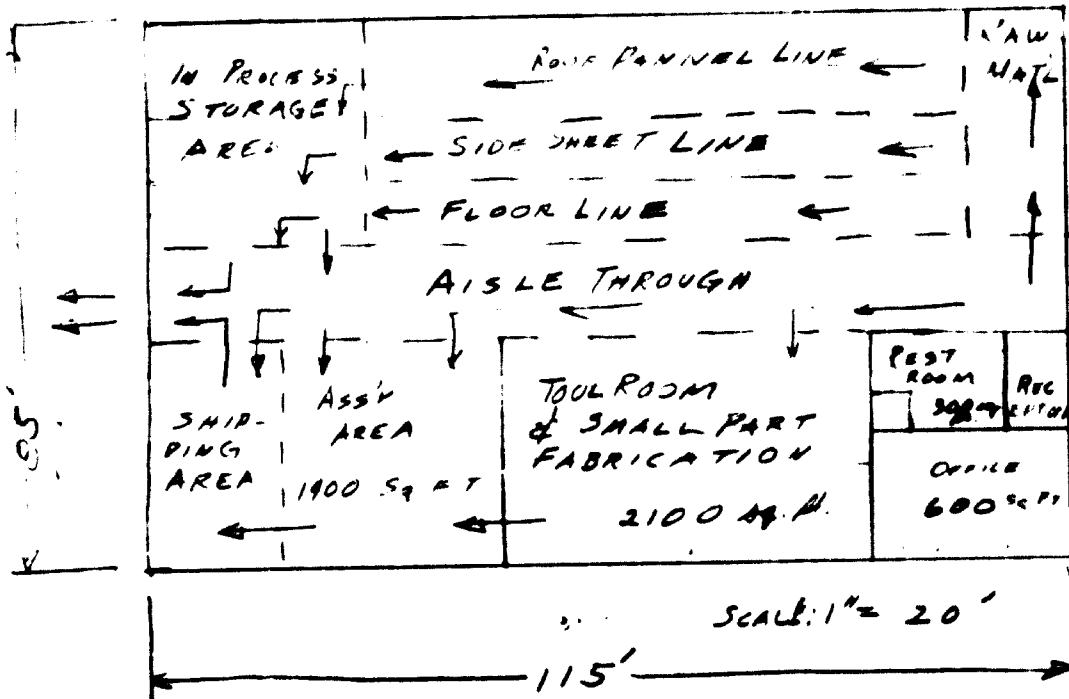 IN PROCESS
STORAGE
AREA
ROOF PANNEL LINE
RAW
MAT'L
SIDE SHEET LINE
FLOOR LINE
AISLE THROUGH
SHIP-
PING
AREA
ASS'Y
AREA
1900 Sq FT
TOOL ROOM
& SMALL PART
FABRICATION
2100 sq. ft.
REST
ROOM
OFFICE
600 Sq FT
SCALE: 1" = 20'
115'